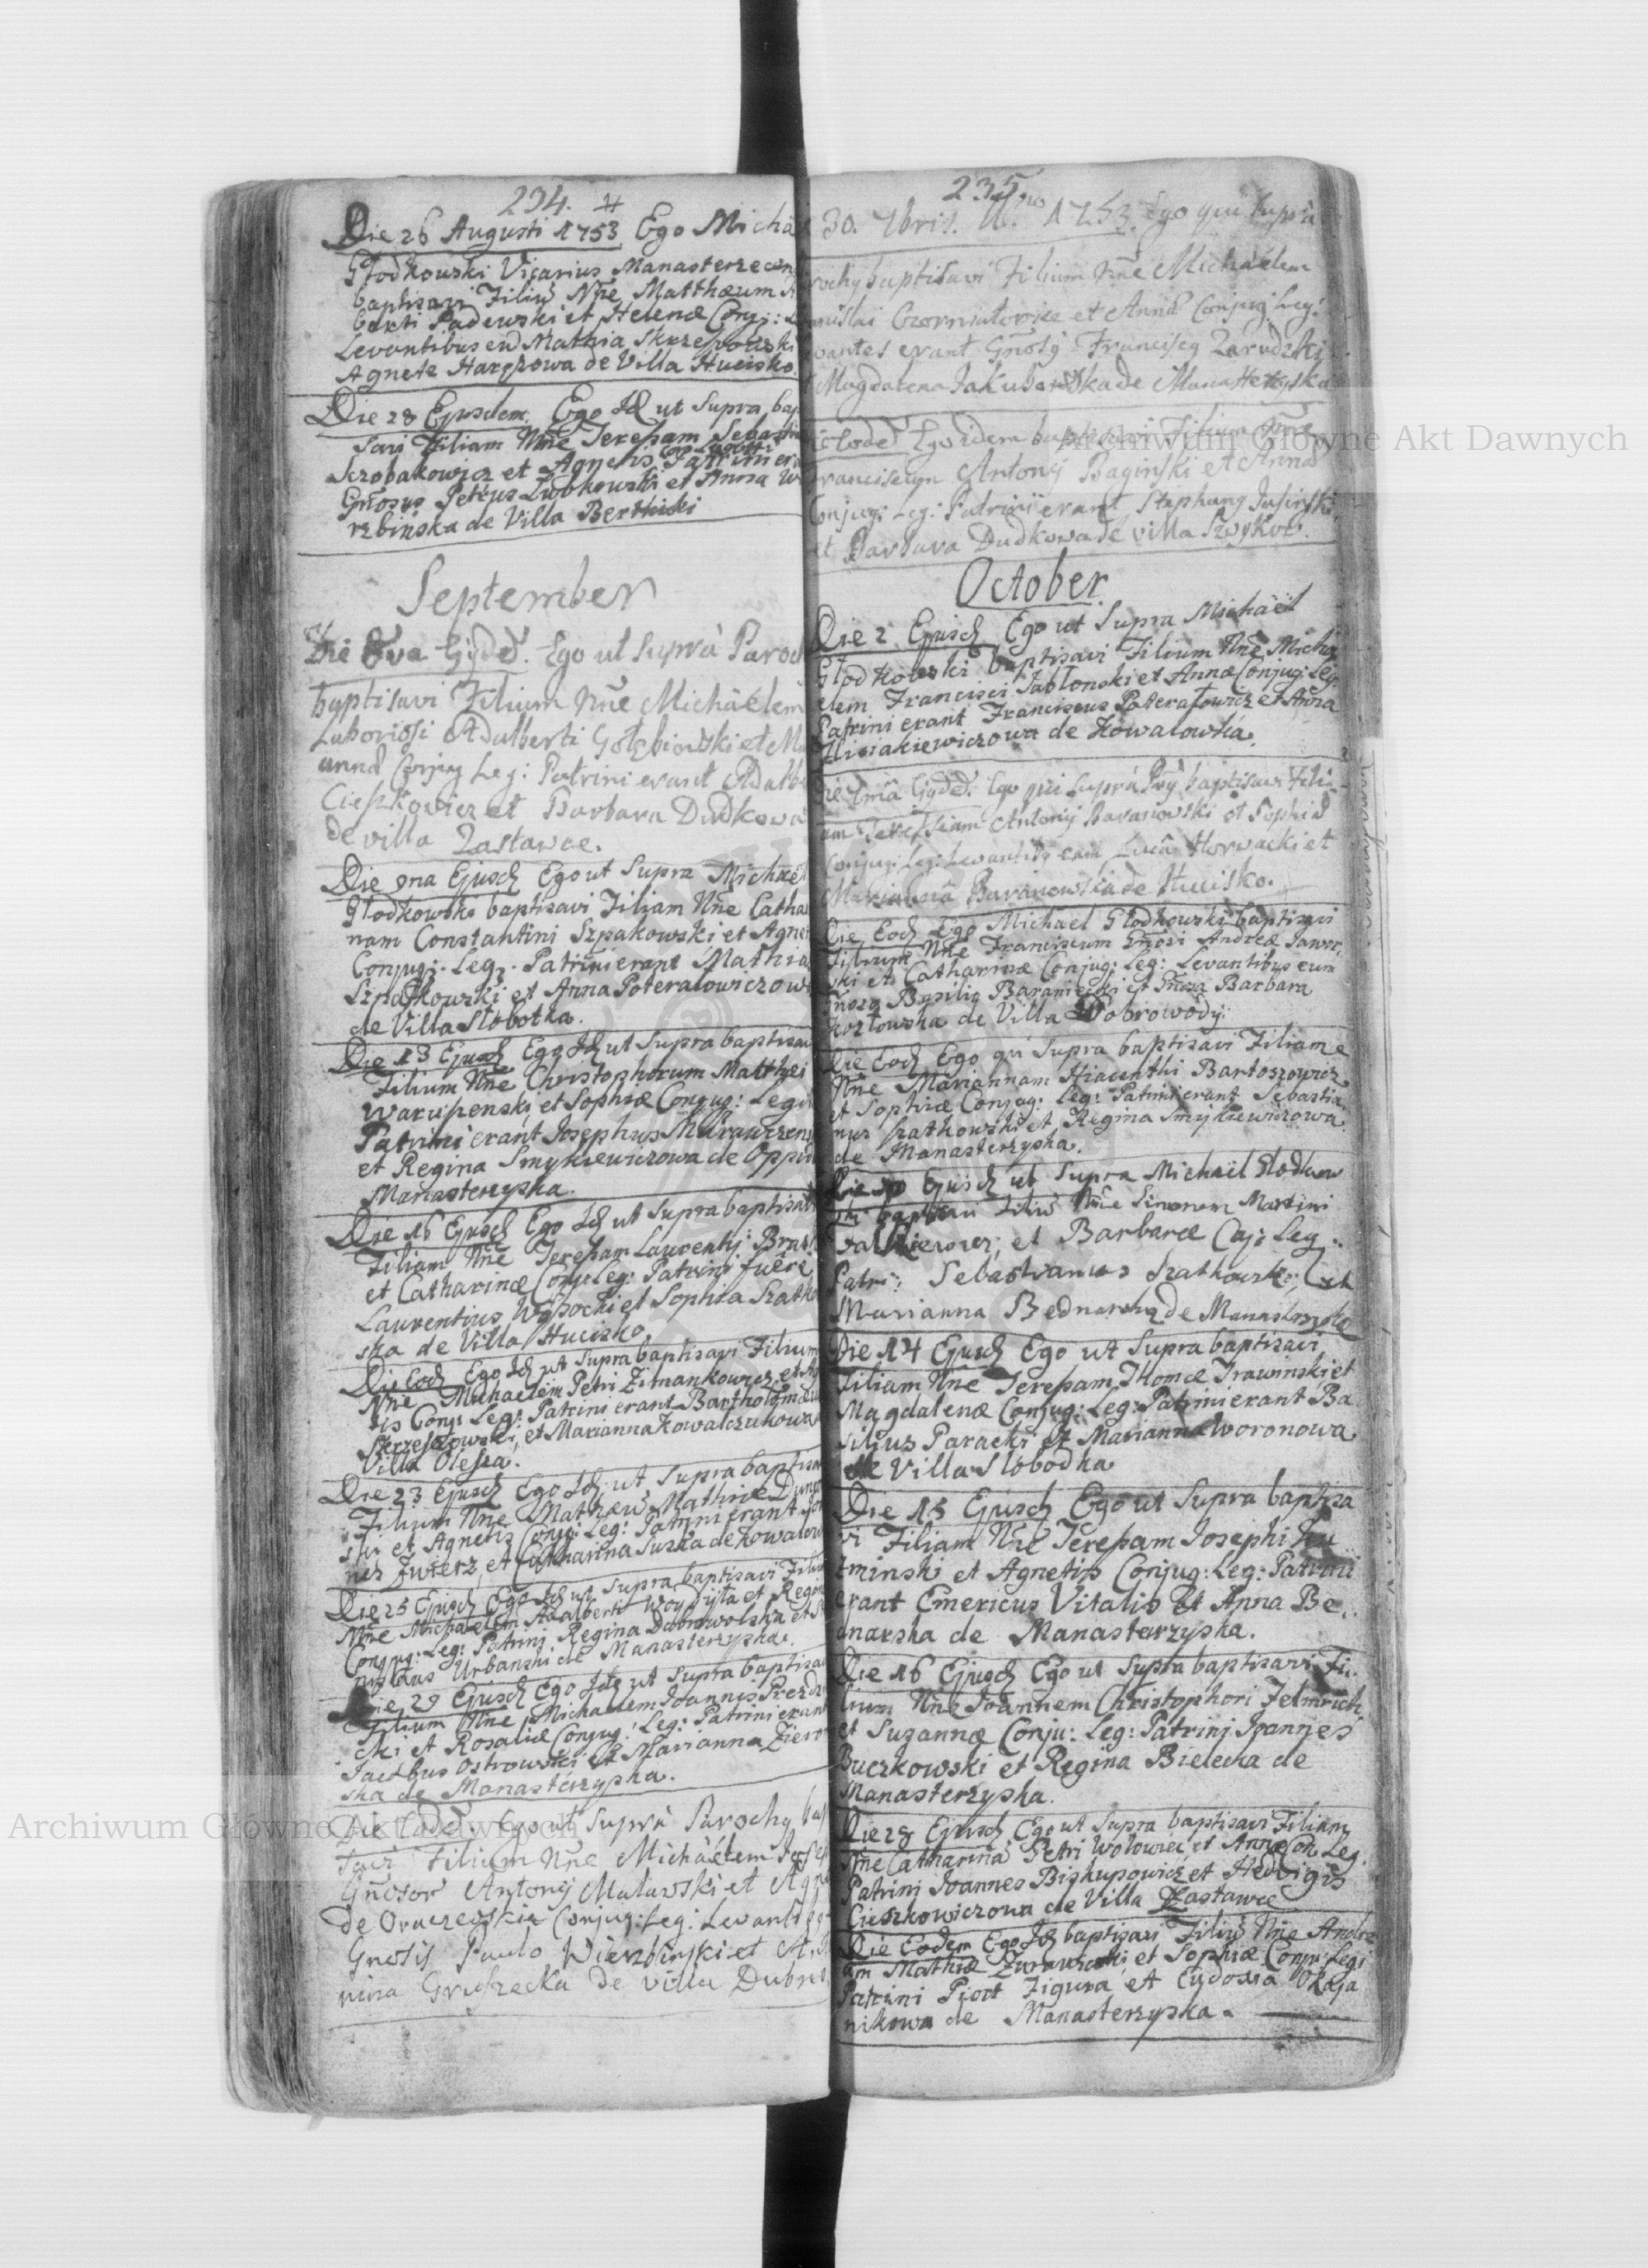 234. #
Die 26 Augusti 1753 Ego Micha
Głodkowski Vicarius Manasterzecen
baptisavi Filiũ Nñe Matthæum A
berti Padewski et Helenæ Conj:
Levantibus eũ Mathia Skrzepowski
Agnete Harczowa de Villa Hucisko.
Die 28 Ejusdem Ego Id ut Supra bap
savi Filiam Nñe Teresam Sebastia
Szobakowicz et Agnetis Conj Legitt: Patrini era
Gñosus Petrus Łwobkowski et Anna W
rzbinska de Villa Berthniki
September
Die 8va Ejusd. Ego ut Suprà Paroch
baptisavi Filium Nñe Michäelem
Laboriosi Adalberti Gołębiowski et M
annæ Conjug Leg: Patrini erant Adalb
Cieszkowicz et Barbara Dudkowa
de villa Zastawce.
Die 9na Ejusd Ego ut Supra Michael
Głodkowski baptisavi Filiam Nñe Catha
nam Constantini Szpakowski et Agne
Conjug: Leg: Patrini erant Mathia
Szpakowski et Anna Poteralowiczowa
de Villa Słobotka.
Die 13 Ejusd Ego Id ut Supra baptisavi
Filium Nñe Christophorum Matthei
Waruszenski et Sophiæ Conjug: Legi
Patrini erant Josephus Murawzens
et Regina Smykiewiczowa de Oppi
Manasterzyska.
Die 16 Ejusd Ego Id ut Supra baptisavi
Filiam Nñe Teresam Laurentij Bras
et Catharinæ Conj: Leg: Patrini fuêre
Laurentius Wysocki et Sophia Szatko
ska de Villa Hucisko.
Die Eod Ego Id ut Supra baptisavi Filium
Nñe Michaelem Petri Zimankowicz et A
is Conj: Leg: Patrini erant Bartholomæu
Skrzeszowski, et Marianna Kowalczukowa
Villa Olesza.
Die 23 Ejusd Ego Id ut Supra baptisa
Filium Nñe Mathæũ Mathiæ
et Agnetis Conj: Leg: Patrini erant Jo
nes Zwierz, et Catharina Suska de Kowalow
Die 25 Ejusd Ego Id ut Supra baptisavi Filiũ
Nñe Michaelem Adalberti Woydyła et Regin
Conjug: Leg: Patrini Regina Dubrowolska et
Urbanski de Manasterzyska.
Die 29 Ejusd Ego Ide ut Supra baptisa
Filium Nñe Michaelem Joannis Prezd
cki et Rosaliæ Conjug: Leg: Patrini erant
Jacobus Ostrowski et Marianna Zierz
ska de Manasterzyska.
Die Eadẽ Ego ut Suprà Parochus bap
savi Filium Nñe Michäelem Josep
Gñosor Antonij Malawski et Agn
de Oraczewskie Conjug: Leg: Levantibg
Gnosis Paulo Wierzbinski et A
nina Gruszecka de villa Dubn
235.
30. 7bris. A.no 1753. Ego qui Supra
rochus baptisavi Filium Nñe Michäelem
anislai Czorniatowicz et Annæ Conjug: Leg:
vantes erant Gñosg Franciscg Zarudzki
Magdalena Jakubowska de Manasterzyska
Ego idem baptisavi Filium Nñe
Franciscum Antonij Baginski et Annæ
Conjug: Leg: Patrini erant Stephang Jasinski
et Barbara Dudkowa de villa Szwykow.
October.
Die 2 Ejusd Ego ut Supra Michäel
Głodkowski baptisavi Filium Nñe Micha
elem Francisci Jabłonski et Annæ Conjug: Leg.
Patrini erant Franciscus Poterałowicz et Anna
Hliniakiewiczowa de Kowalowka.
Die 7mâ Ejusdẽ. Ego qui Suprà baptisavi Fili
am Teressiam Antonij Baranowski et Sophiæ
Conjug: Leg: Levantibg eam Lucâ Horwacki et
Mariannâ Baranowska de Hucisko.
Die Eod Ego Michael Głodkowski baptisavi
Filium Nñe Franciscum Gñosi Andreæ Jawor
ski et Catharinæ Conjug: Leg: Levantibus eum
Gñoso Basilio Baraniecki et Gñosa Barbara
Kozłowska de Villa Dobrowody.
Die Eod Ego qui Supra baptisavi Filiam
Nñe Mariannam Hiacenthi Bartoszowicz
et Sophiæ Conjug: Leg: Patrini erant Sebastia
nus Szatkowski et Regina Smykiewiczowa
de Manasterzyska.
Die 10 Ejusd ut Supra Michael Głodkow
ski baptisavi Filiũ Nñe Simonem Martini
Falkiewicz, et Barbaræ Coj: Leg:
Patri: Sebastianus Szatkowski, et
Marianna Bednarska de Manasterzyska
Die 14 Ejusd Ego ut Supra baptisavi
Filiam Nñe Teresam Thomæ Trawinski et
Magdalenæ Conjug: Leg: Patrini erant Ba
silius Paracki et Marianna Woronowa
de Villa Słobodka
Die 15 Ejusd Ego ut Supra baptisa
vi Filiam Nñe Teresam Josephi Ku
tminski et Agnetis Conjug: Leg: Patrini
erant Emericus Vitalis et Anna Be
dnarska de Manasterzyska.
Die 16 Ejusd Ego ut Supra baptisavi Fi
lium Nñe Joannem Christophori Felmrich
et Susannæ Conju: Leg: Patrinj Joannes
Buczkowski et Regina Bielecka de
Manasterzyska.
Die 28 Ejusd Ego ut Supra baptisavi Filiam
Nñe Catharinã Petri Wołowiec et Annæ Con Leg.
Patrini Joannes Biskupowicz et Hedvigis
Cieszkowiczowa de Villa Zastawce
Die Eodem Ego Id baptisavi Filiũ Nñe Andre
am Mathiæ Zurawski et Sophiæ Conju: Legi
Patrini Piotr Figura et Eudoxia Okaja
nikowa de Manasterzyska.
Archiwum Główne Akt Dawnych
Archiwum Główne Akt Dawnych